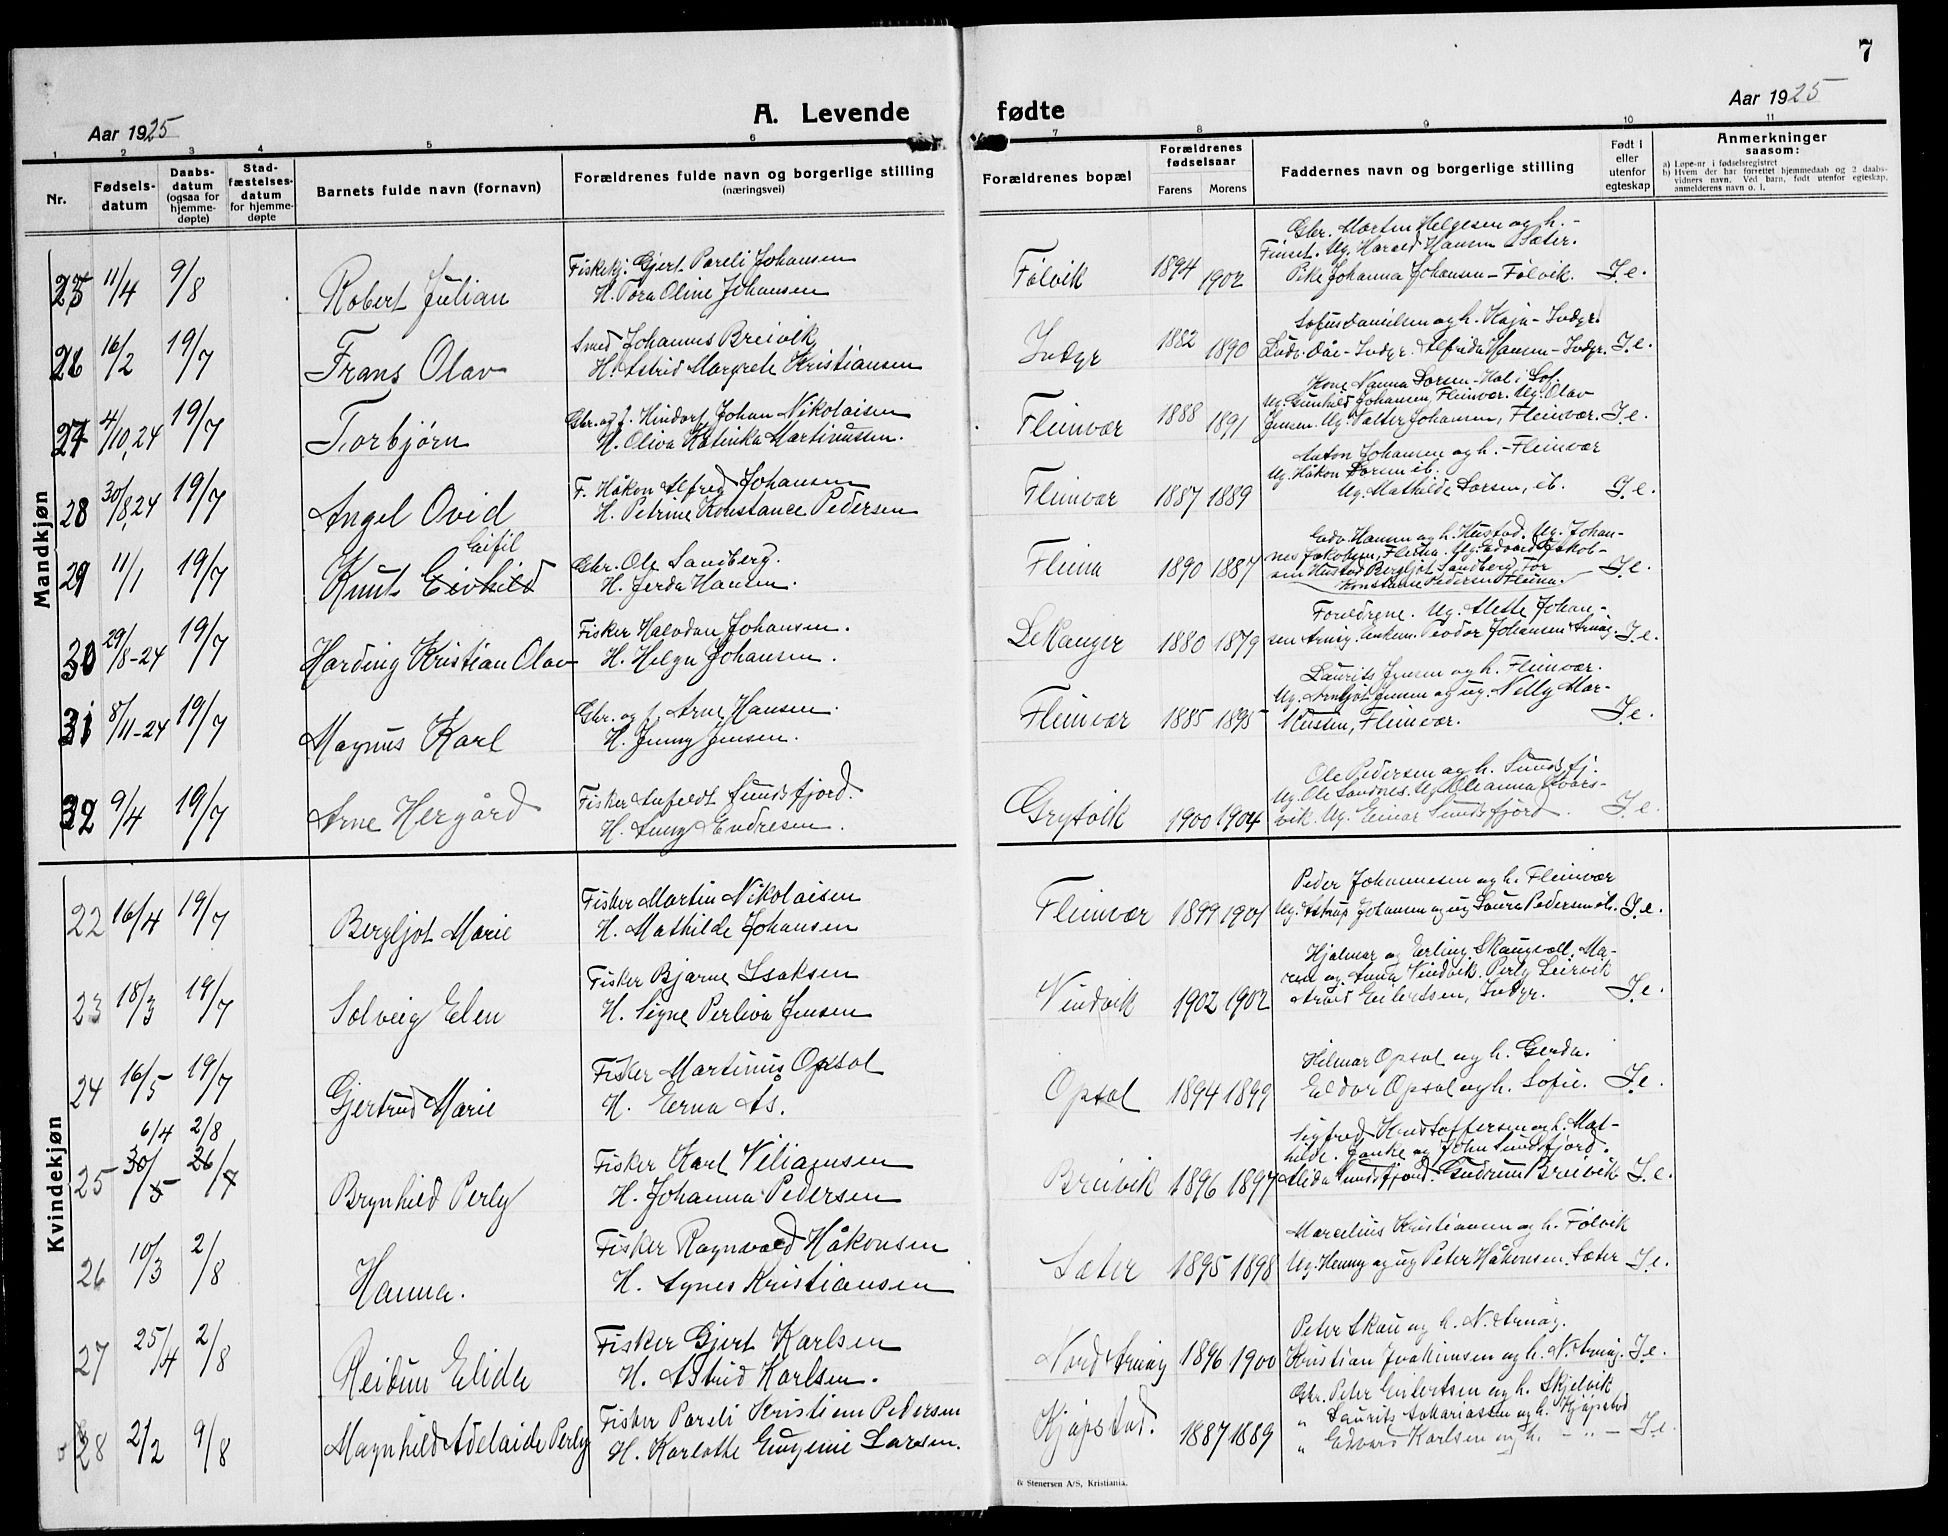 7
Aar 1925
A. Levende
fødte
Aar 1925
1 2 3 4 5 6 7 8 9 10 11
Nr.
Fødsels-
datum
Daabs-
datum
(ogsaa for
hjemme-
døpte)
Stad-
fæstelses-
datum
for hjemme-
døpte
Barnets fulde navn (fornavn)
Forældrenes fulde navn og borgerlige stilling
(næringsvei)
Forældrenes bopæl
Forældrenes
fødselsaar
Farens Morens
Faddernes navn og borgerlige stilling
Født i
eller
utenfor
egteskap
Anmerkninger
saasom:
a) Løpe-nr. i fødselsregistret
b) Hvem der har forrettet hjemmedaab og 2 daabs-
vidners navn. Ved barn, født utenfor egteskap,
anmelderens navn o. l.
Mandkjøn
25 11/4 9/8 Robert Julian
Fiskekj. Gjert Pareli Johansen
H. Tora Oline Johansen
Følvik 1894 1902
Gbr. Morten Helgesen og h. -
Finset. Ug. Harald Hansen Sæter.
Pike Johanna Johansen - Følvik. I e.
26 16/2 19/7 Frans Olav
Smed Johannes Breivik
H. Astrid Margrete Kristiansen
Indyr 1882 1890
Sofus Danielsen og h. Kaja - Indyr.
Ludv. Dåe - Indyr. Alfrida Hansen - Indyr. I e.
27 4/10,24 19/7 Torbjørn
Gbr. og f. Hindorf Johan Nikolaisen
H. Oliva Katinka Martinussen.
Fleinvær 1888 1891
Kone Nanna Dorsen - Hol i Lof.
Ug. Gunhild Johansen, Fleinvær. Ug. Olav
Jensen. Ug. Valter Johansen, Fleinvær. I e.
28 30/8,24 19/7 Angel Ovid
F. Håkon Alfred Johansen
H. Petrine Konstance Pedersen
Fleinvær 1887 1889
Anton Johansen og h. - Fleinvær
Ug. Håkon Dorsen ib.
Ug. Mathilde Dorsen, ib. I e.
29 11/1 19/7 Knut Eivhild
Leifil
Gbr. Ole Sandberg.
H. Jerda Hansen.
Fleina 1890 1887
Edv. Hansen og h. Hustad. Ug. Johan-
nes Jakobsen, Fleina. Ug. Edvard Jakob-
sen Hustad Bergljot Sandberg, For
Konstance Pedersen Fleina. I e.
30 29/8-24 19/7 Harding Kristian Olav
Fisker Halvdan Johansen.
H. Helga Johansen.
Lekanger 1880 1879
Foreldrene. Ug. Mette Johan-
sen Arnøy. Enkem. Peodor Johansen Arnøy. I e.
31 8/11-24 19/7 Magnus Karl
Gbr. og f. Arne Hansen.
H. Jenny Jensen.
Fleinvær 1885 1895
Laurits Jensen og h. Fleinvær.
Ug. Arnljot Jensen og ug. Nelly Mar-
tinusen, Fleinvær. I e.
32 9/4 19/7 Arne Hergård
Fisker Anfeldt Sundsfjord.
H. Anny Endresen.
Grytvik 1900 1904
Ole Pedersen og h. Sundsfj.
Ug. Ole Sandnes. Ug. Oleanna Kvars-
vik. Ug. Einar Sundsfjord. I e.
Kvindekjøn
22 16/4 19/7 Bergljot Marie
Fisker Martin Nikolaisen
H. Mathilde Johansen
Fleinvær 1899 1901
Peder Johannesen og h. Fleinvær
Ug. Astrup Johansen og ug Laura Pedersen ib. I e.
23 18/3 19/7 Solveig Elen
Fisker Bjarne Isaksen
H. Signe Perliva Jensen
Vindvik 1902 1902
Hjalmar og Erling Skaugvoll, Ma-
ren og Anna Vindvik. Perly Leirvik
Arvid Eilertsen, Indyr. I e.
24 16/5 19/7 Gjertrud Marie
Fisker Martinus Opsal
H. Erna Ås.
Opsal 1894 1899
Hilmar Opsal og h. Gerda.
Eldor Opsal og h. Sofie. I e.
25 6/4 2/8
30/5 26/7 Brynhild Perly
Fisker Karl Viliamsen
H. Johanna Pedersen
Breivik 1896 1897
Sigfred Kristoffersen og h. Mat-
hilde. Janke og John Sundsfjord.
Alida Sundsfjord. Gudrun Breivik I e.
26 10/3 2/8 Hanna.
Fisker Ragnvald Håkonsen
H. Agnes Kristiansen
Sæter 1895 1898
Marcelius Kristiansen og h. Følvik
Ug. Henny og ug Peter Håkonsen. Sæter I e.
27 25/4 2/8 Reidun Elida
Fisker Gjert Karlsen
H. Astrid Karlsen.
Nord Arnøy 1896 1900
Peter Skau og h. N. Arnøy.
Kristian Joakimsen og h. N. Arnøy. I e.
28 2/2 9/8 Magnhild Adelaide Perly
Fisker Pareli Kristian Pedersen
H. Karlotte Eugenie Larsen.
Kjøpstad. 1887 1889
Gbr. Peter Eilertsen og h. Skjelvik
" Laurits Sakariassen og h. Kjøpstad
" Edvard Karlsen og h. - " - I e.
& Stenersen A/S, Kristiania.